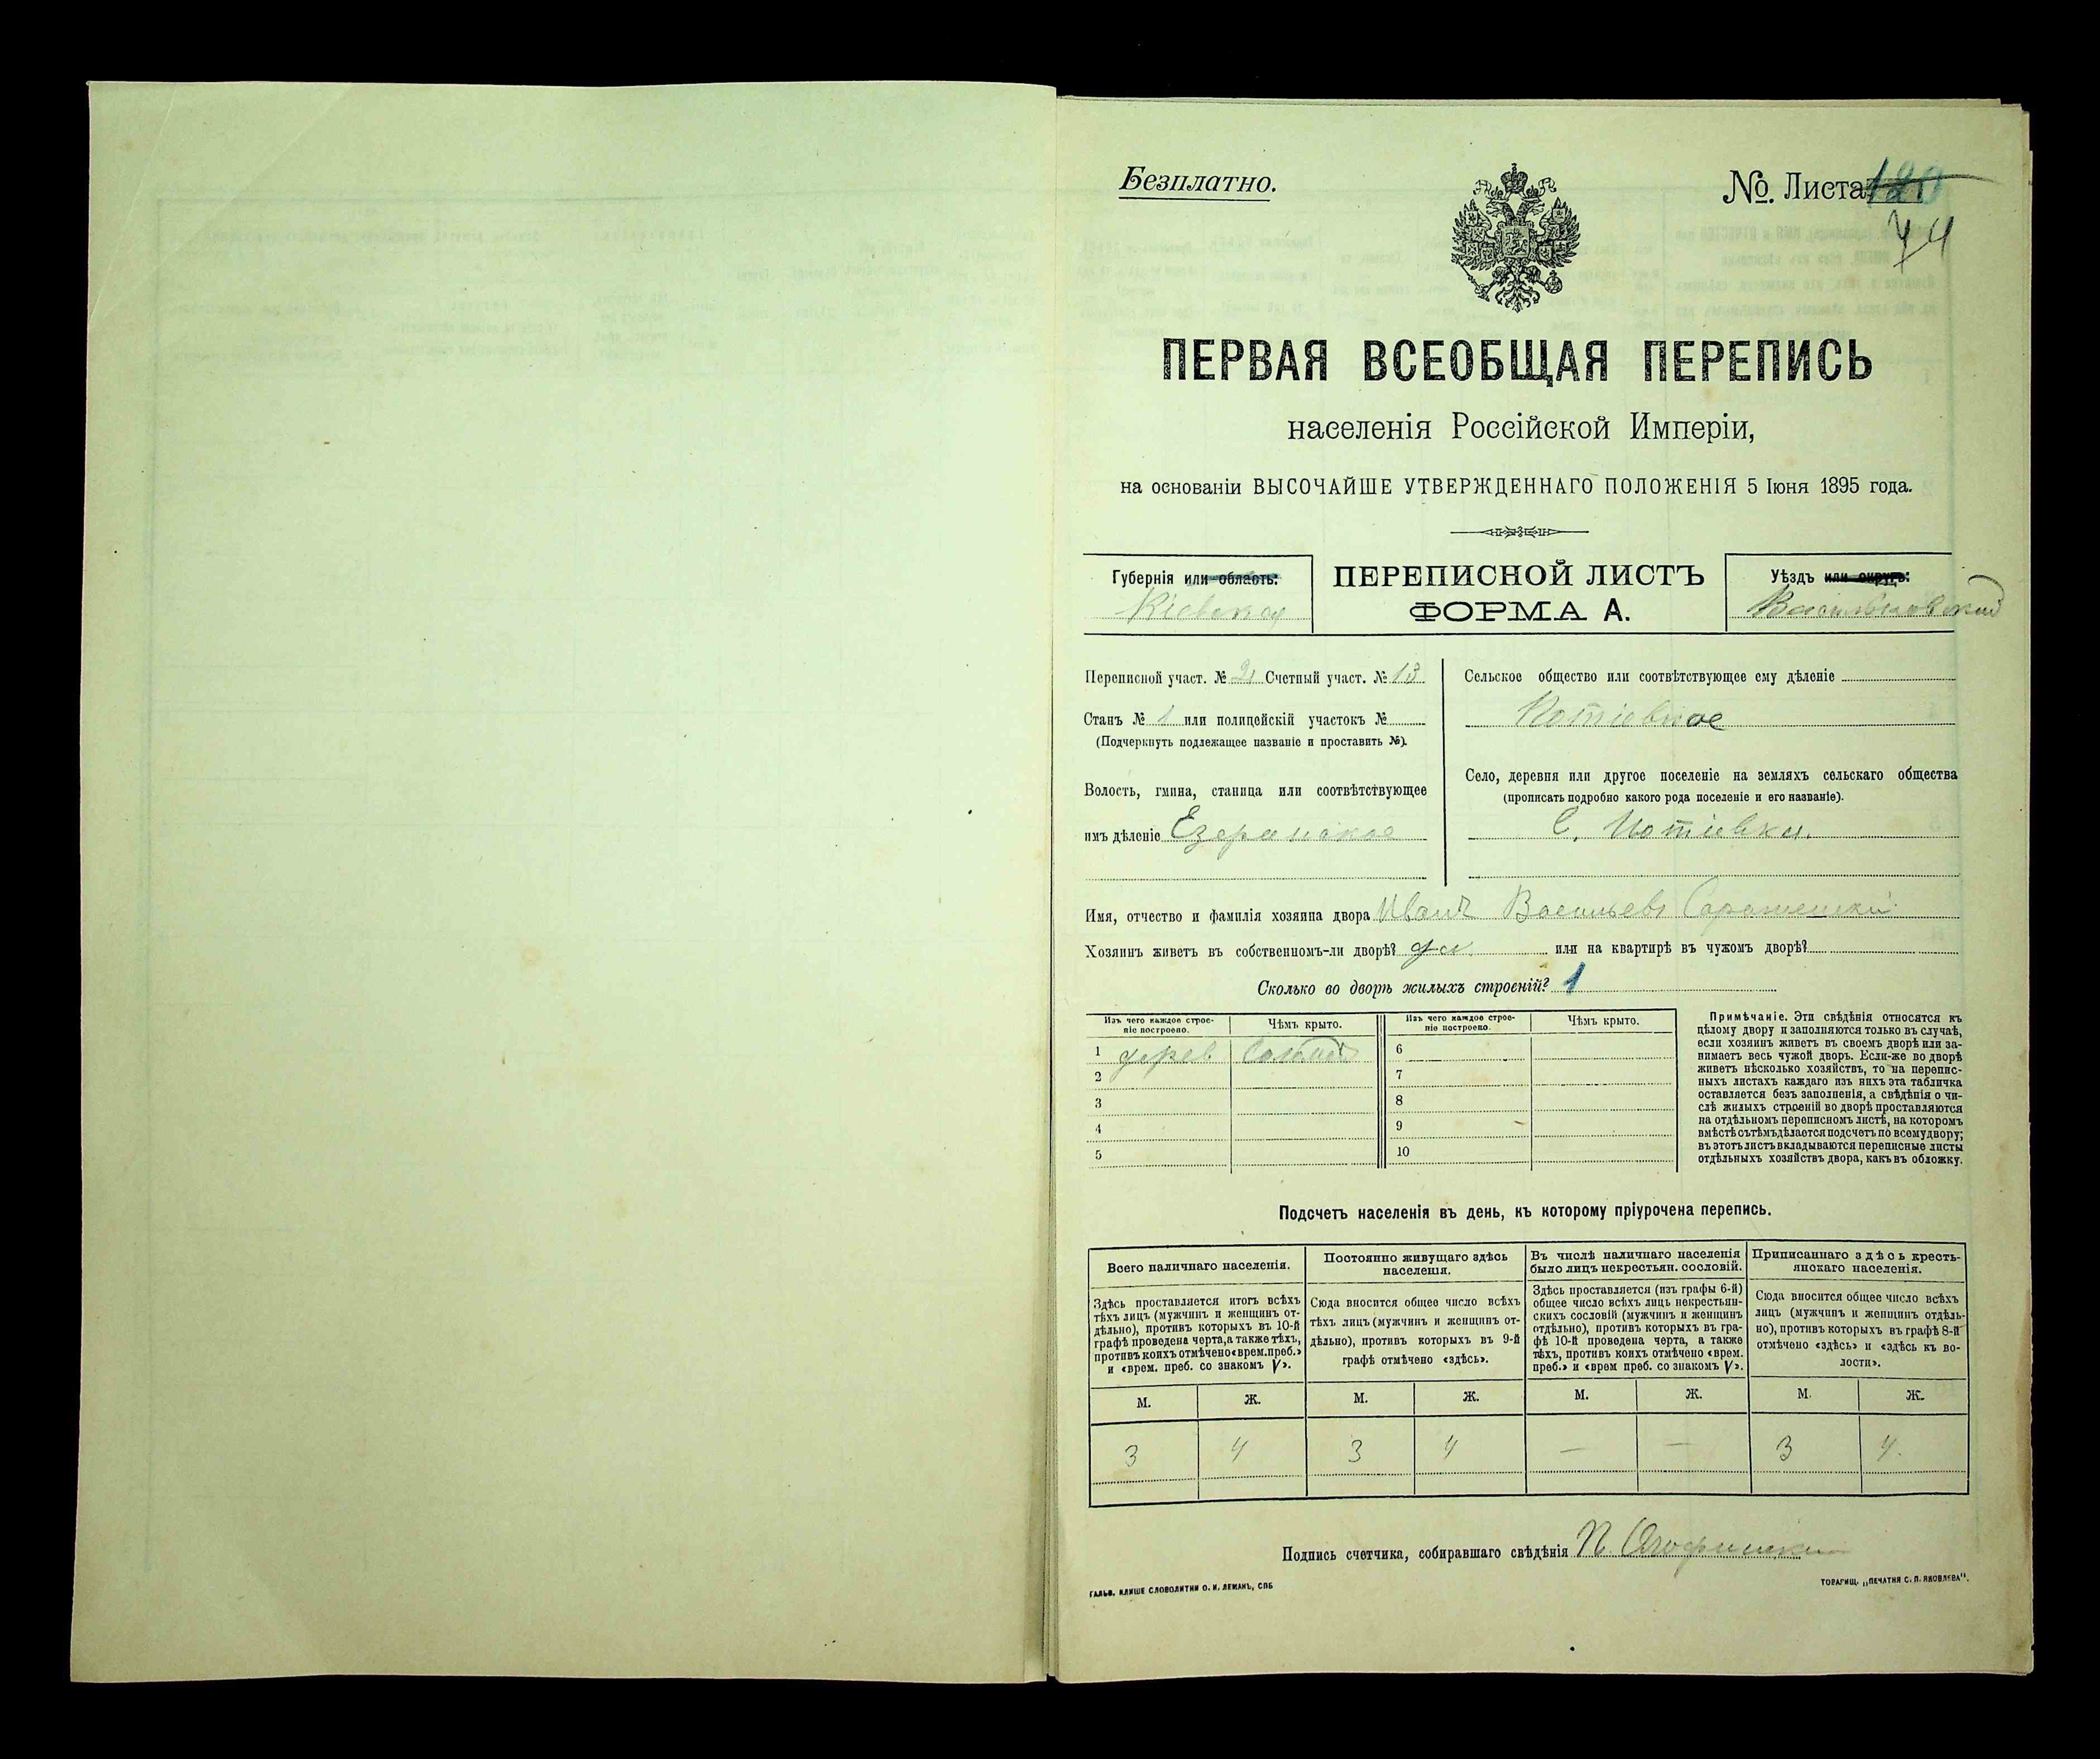 Безплатно.
№. Листа 120
44
ПЕРВАЯ ВСЕОБЩАЯ ПЕРЕПИСЬ
населенія Россійской Имперіи,
на основаніи ВЫСОЧАЙШЕ УТВЕРЖДЕННАГО ПОЛОЖЕНІЯ 5 Іюня 1895 года.
Губернія или область:
Кіевская
ПЕРЕПИСНОЙ ЛИСТЪ
ФОРМА А.
Уѣздъ или округъ:
Васильковскій
Переписной участ. № 21 Счетный участ. № 13
Станъ № 1 или полицейскій участокъ №
(Подчеркнуть подлежащее названіе и проставить №).
Волость, гмина, станица или соотвѣтствующее
имъ дѣленіе Езерянское
Сельское общество или соотвѣтствующее ему дѣленіе
Потіевское
Село, деревня или другое поселеніе на земляхъ сельскаго общества
(прописать подробно какого рода поселеніе и его названіе).
С. Потіевка.
Имя, отчество и фамилія хозяина двора Иванъ Васильевъ
Хозяинъ живетъ въ собственномъ-ли дворѣ? да. или на квартирѣ въ чужомъ дворѣ?
Сколько во дворѣ жилыхъ строеній? 1
Изъ чего каждое строе-
ніе построено.
Чѣмъ крыто.
Изъ чего каждое строе-
ніе построено.
Чѣмъ крыто.
1 дерев Солом. 6
2 7
3 8
4 9
5 10
Примѣчаніе. Эти свѣдѣнія относятся къ
цѣлому двору и заполняются только въ случаѣ,
если хозяинъ живетъ въ своемъ дворѣ или за-
нимаетъ весь чужой дворъ. Если-же во дворѣ
живетъ нѣсколько хозяйствъ, то на перепис-
ныхъ листахъ каждаго изъ нихъ эта табличка
оставляется безъ заполненія, а свѣдѣнія о чи-
слѣ жилыхъ строеній во дворѣ проставляются
на отдѣльномъ переписномъ листѣ, на которомъ
вмѣстѣ съ тѣмъ дѣлается подсчетъ по всему двору;
въ этотъ листъ вкладываются переписные листы
отдѣльныхъ хозяйствъ двора, какъ въ обложку.
Подсчетъ населенія въ день, къ которому пріурочена перепись.
Всего наличнаго населенія.
Здѣсь проставляется итогъ всѣхъ
тѣхъ лицъ (мужчинъ и женщинъ от-
дѣльно), противъ которыхъ въ 10-й
графѣ проведена черта, а также тѣхъ,
противъ коихъ отмѣчено «врем. преб.»
и «врем. преб. со знакомъ V».
Постоянно живущаго здѣсь
населенія.
Сюда вносится общее число всѣхъ
тѣхъ лицъ (мужчинъ и женщинъ от-
дѣльно), противъ которыхъ въ 9-й
графѣ отмѣчено «здѣсь».
Въ числѣ наличнаго населенія
было лицъ некрестьян. сословій.
Здѣсь проставляется (изъ графы 6-й)
общее число всѣхъ лицъ некрестьян-
скихъ сословій (мужчинъ и женщинъ
отдѣльно), противъ которыхъ въ гра-
фѣ 10-й проведена черта, а также
тѣхъ, противъ коихъ отмѣчено «врем.
преб.» и «врем преб. со знакомъ V».
Приписаннаго здѣсь кресть-
янскаго населенія.
Сюда вносится общее число всѣхъ
лицъ (мужчинъ и женщинъ отдѣль-
но), противъ которыхъ въ графѣ 8-й
отмѣчено «здѣсь» и «здѣсь къ во-
лости».
М. Ж. М. Ж. М. Ж. М. Ж.
3 4 3 4 — — 3 4.
Подпись счетчика, собиравшаго свѣдѣнія П.
ГАЛЬВ. КЛИШЕ СЛОВОЛИТНИ О. И. ЛЕМАНЪ, СПБ
ТОВАРИЩ. „ПЕЧАТНЯ С. П. ЯКОВЛЕВА".